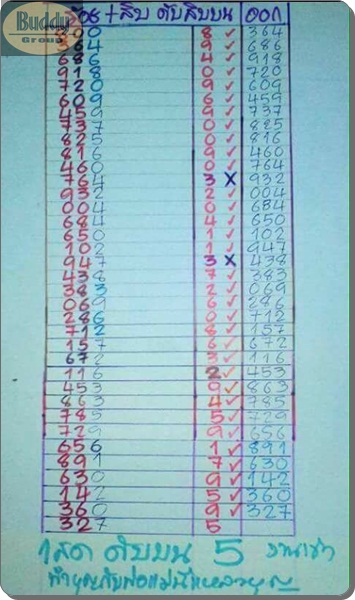 Buddy
Group
ร้อย + สิบ ดับสิบบน ออก
300 8 ✓ 364
364 9 ✓ 686
686 4 ✓ 918
918 0 ✓ 720
720 9 ✓ 609
609 6 ✓ 459
459 9 ✓ 737
737 0 ✓ 825
825 0 ✓ 816
816 9 ✓ 460
460 0 ✓ 764
764 3 X 932
932 2 ✓ 004
004 0 ✓ 684
684 4 ✓ 650
650 1 ✓ 102
102 1 ✓ 947
947 3 X 438
438 7 ✓ 383
383 2 ✓ 069
069 6 ✓ 286
286 0 ✓ 712
712 8 ✓ 157
157 6 ✓ 672
672 3 ✓ 116
116 2 ✓ 453
453 9 ✓ 863
863 4 ✓ 785
785 5 ✓ 729
729 9 ✓ 656
656 1 ✓ 891
891 7 ✓ 630
630 9 ✓ 142
142 5 ✓ 360
360 9 ✓ 327
327 5
ดับบน 5